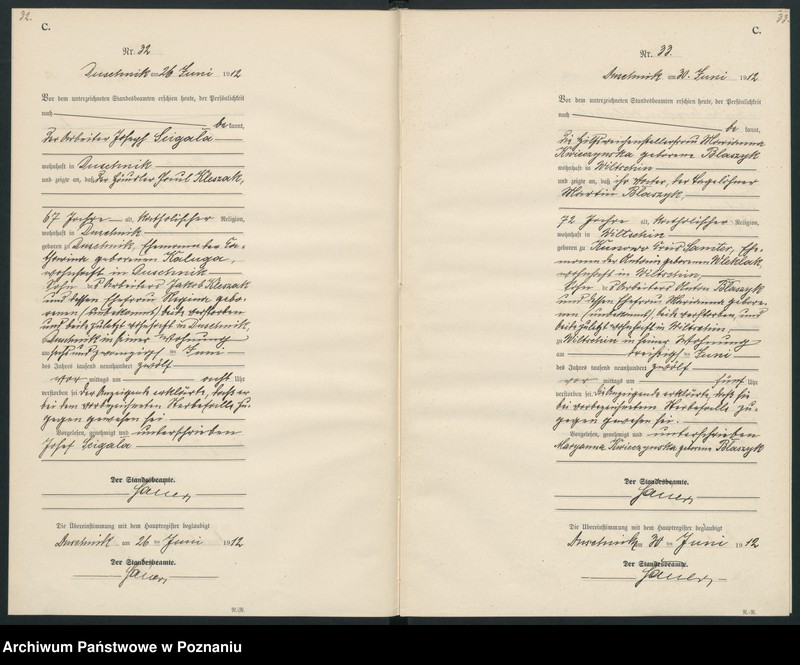 32.
C.
Nr. 32
Duschnik am 26 Juni 1912
Vor dem unterzeichneten Standesbeamten erschien heute, der Persönlichkeit
nach
be kannt,
der Arbeiter Joseph Scigala
wohnhaft in Duschnik
und zeigte an, daß der Häusler Paul Kleszak,
67 Jahre alt, katholischer Religion,
wohnhaft in Duschnik
geboren zu Duschnik, Ehemann der Ca-
tharina geborenen Kaluga,
wohnhaft in Duschnik
Sohn des Arbeiters Jakob Kleszak
und dessen Ehefrau Regina gebo-
renen (unbekannt), beide verstorben
und beide zuletzt wohnhaft in Duschnik,
Duschnik in seiner Wohnung
am sechs und zwanzigsten Juni
des Jahres tausend neunhundert zwölf
vor mittags um acht Uhr
verstorben sei. Der Anzeigende erklärte, daß er
bei dem vorbezeichneten Sterbefalle zu-
gegen gewesen sei
Vorgelesen, genehmigt und unterschrieben
Josef Scigala
Der Standesbeamte.
Die Übereinstimmung mit dem Hauptregister beglaubigt
Duschnik am 26 ten Juni 1912
Der Standesbeamte.
33.
C.
Nr. 33
Duschnik am 30. Juni 1912
Vor dem unterzeichneten Standesbeamten erschien heute, der Persönlichkeit
nach
be kannt,
die Hilfsweichenstellerfrau Marianna
Kwieczynska geborene Blaszyk
wohnhaft in Wiltschin
und zeigte an, daß ihr Vater, der Tagelöhner
Martin Blaszyk,
72 Jahre alt, katholischer Religion,
wohnhaft in Wiltschin
geboren zu Kunowo Kreis Samter, Ehe-
mann der Antonie geborenen Wleklak,
wohnhaft in Wiltschin,
Sohn des Arbeiters Anton Blaszyk
und dessen Ehefrau Marianna gebore-
nen (unbekannt), beide verstorben, und
beide zuletzt wohnhaft in Wiltschin,
zu Wiltschin in seiner Wohnung
am dreißigsten Juni
des Jahres tausend neunhundert zwölf
vor mittags um fünf Uhr
verstorben sei. Die Anzeigende erklärte, daß sie
bei vorbezeichnetem Sterbefalle zu-
gegen gewesen sei.
Vorgelesen, genehmigt und unterschrieben
Maryanna Kwieczynska geborene Blaszyk
Der Standesbeamte.
Die Übereinstimmung mit dem Hauptregister beglaubigt
Duschnik am 30 ten Juni 1912
Der Standesbeamte.
Archiwum Państwowe w Poznaniu